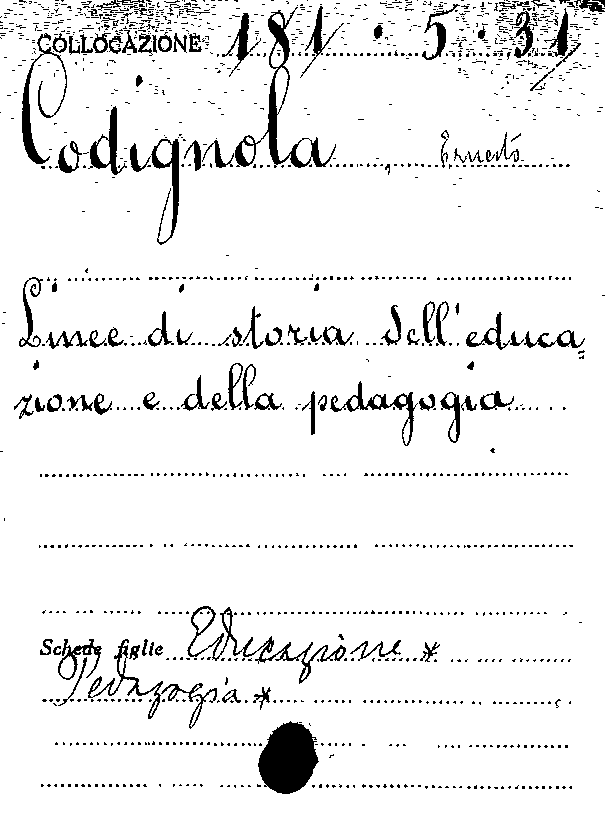 COLLOCAZIONE 181 · 5 · 31
Codignola, Ernesto
Linee di storia dell'educa=
zione e della pedagogia
Schede figlie Educazione *
Pedagogia *